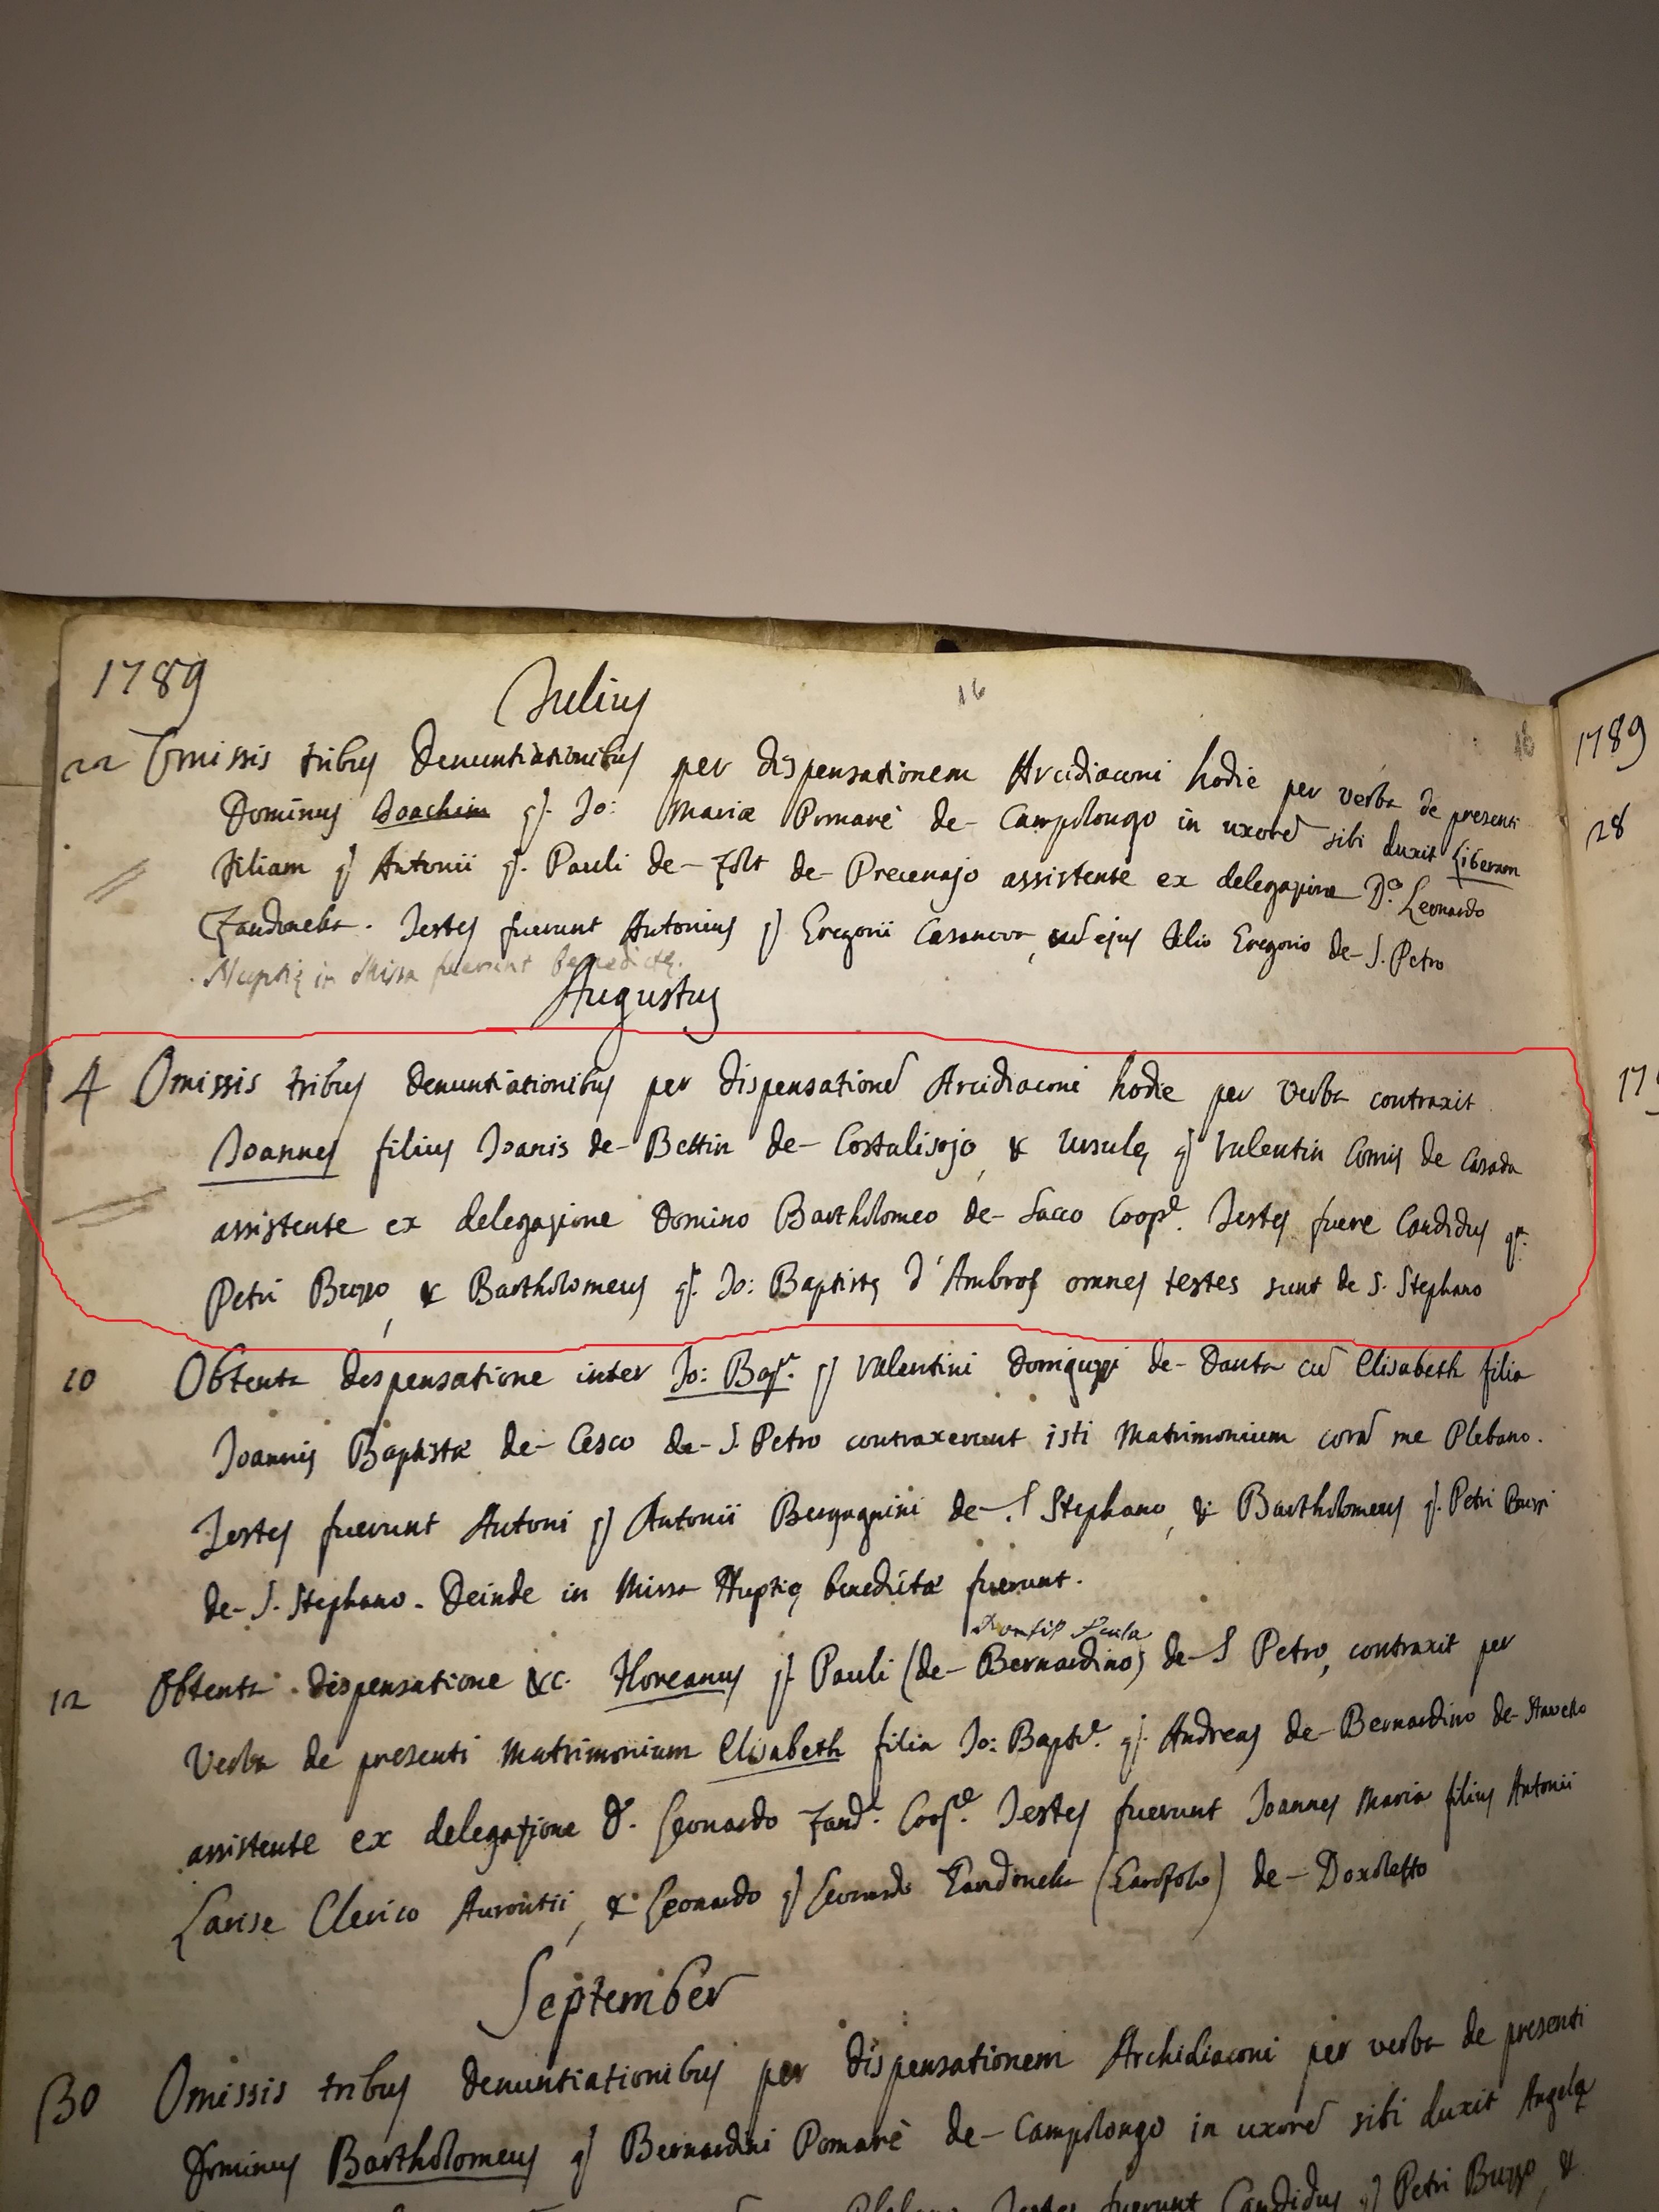 1789
Julius
16
16
22 Omissis tribus Denuntiationibus per dispensationem Arcidiaconi hodie per verba de presenti
Dominus Joachim q. Jo: Mariæ Pomarè de Campolongo in uxorē sibi duxit Liberam
filiam q Antonii q. Pauli de Zolt de Precenajo assistente ex delegazione D.º Leonardo
Zandonella. Testes fuerunt Antonius q Gregorii Casanova, ejus filio Gregorio de S. Petro
Nuptię in Missa fuerunt benedictę.
Augustus
4 Omissis tribus denuntiationibus per dispensationē Arcidiaconi hodie per verba contraxit
Joannes filius Joanis de Bettin de Costalisojo, & Ursulę q Valentin Comis de Casada
assistente ex delegazione Domino Bartholomeo de Sacco Coop.e Testes fuere Candidus q.m
Petri Buzzo, & Bartholomeus q. Jo: Baptistę d'Ambros omnes testes sunt de S. Stephano
10 Obtenta despensatione inter Jo: Bap. q Valentini Doriguzzi de Danta cū Elisabeth filia
Joannis Baptistæ de Cesco de S. Petro contraxerunt isti Matrimonium corā me Plebano.
Testes fuerunt Antoni q Antonii Bergagnini de S Stephano, & Bartholomeus q. Petri Buzzi
de S. Stephano. Deinde in Missa Nuptię benedictæ fuerunt.
12 Obtenta dispensatione &c. Floreanus q. Pauli (de Bernardino) de S Petro, contraxit per
Verba de presenti Matrimonium Elisabeth filia Jo: Bapt.e q. Andreas de Bernardino de
assistente ex delegazione D. Leonardo Zand. Coop.e Testes fuerunt Joannes Maria filius Antonii
Larise Clerico Aurontii, & Leonardo q Leonardo Zandonella de
September
30 Omissis tribus denuntiationibus per dispensationem Archidiaconi per verba de presenti
Dominus Bartholomeus q Bernardini Pomarè de Campolongo in uxorē sibi duxit Angelą
Testes fuerunt Candidus q Petri Buzzo, &
1789
28